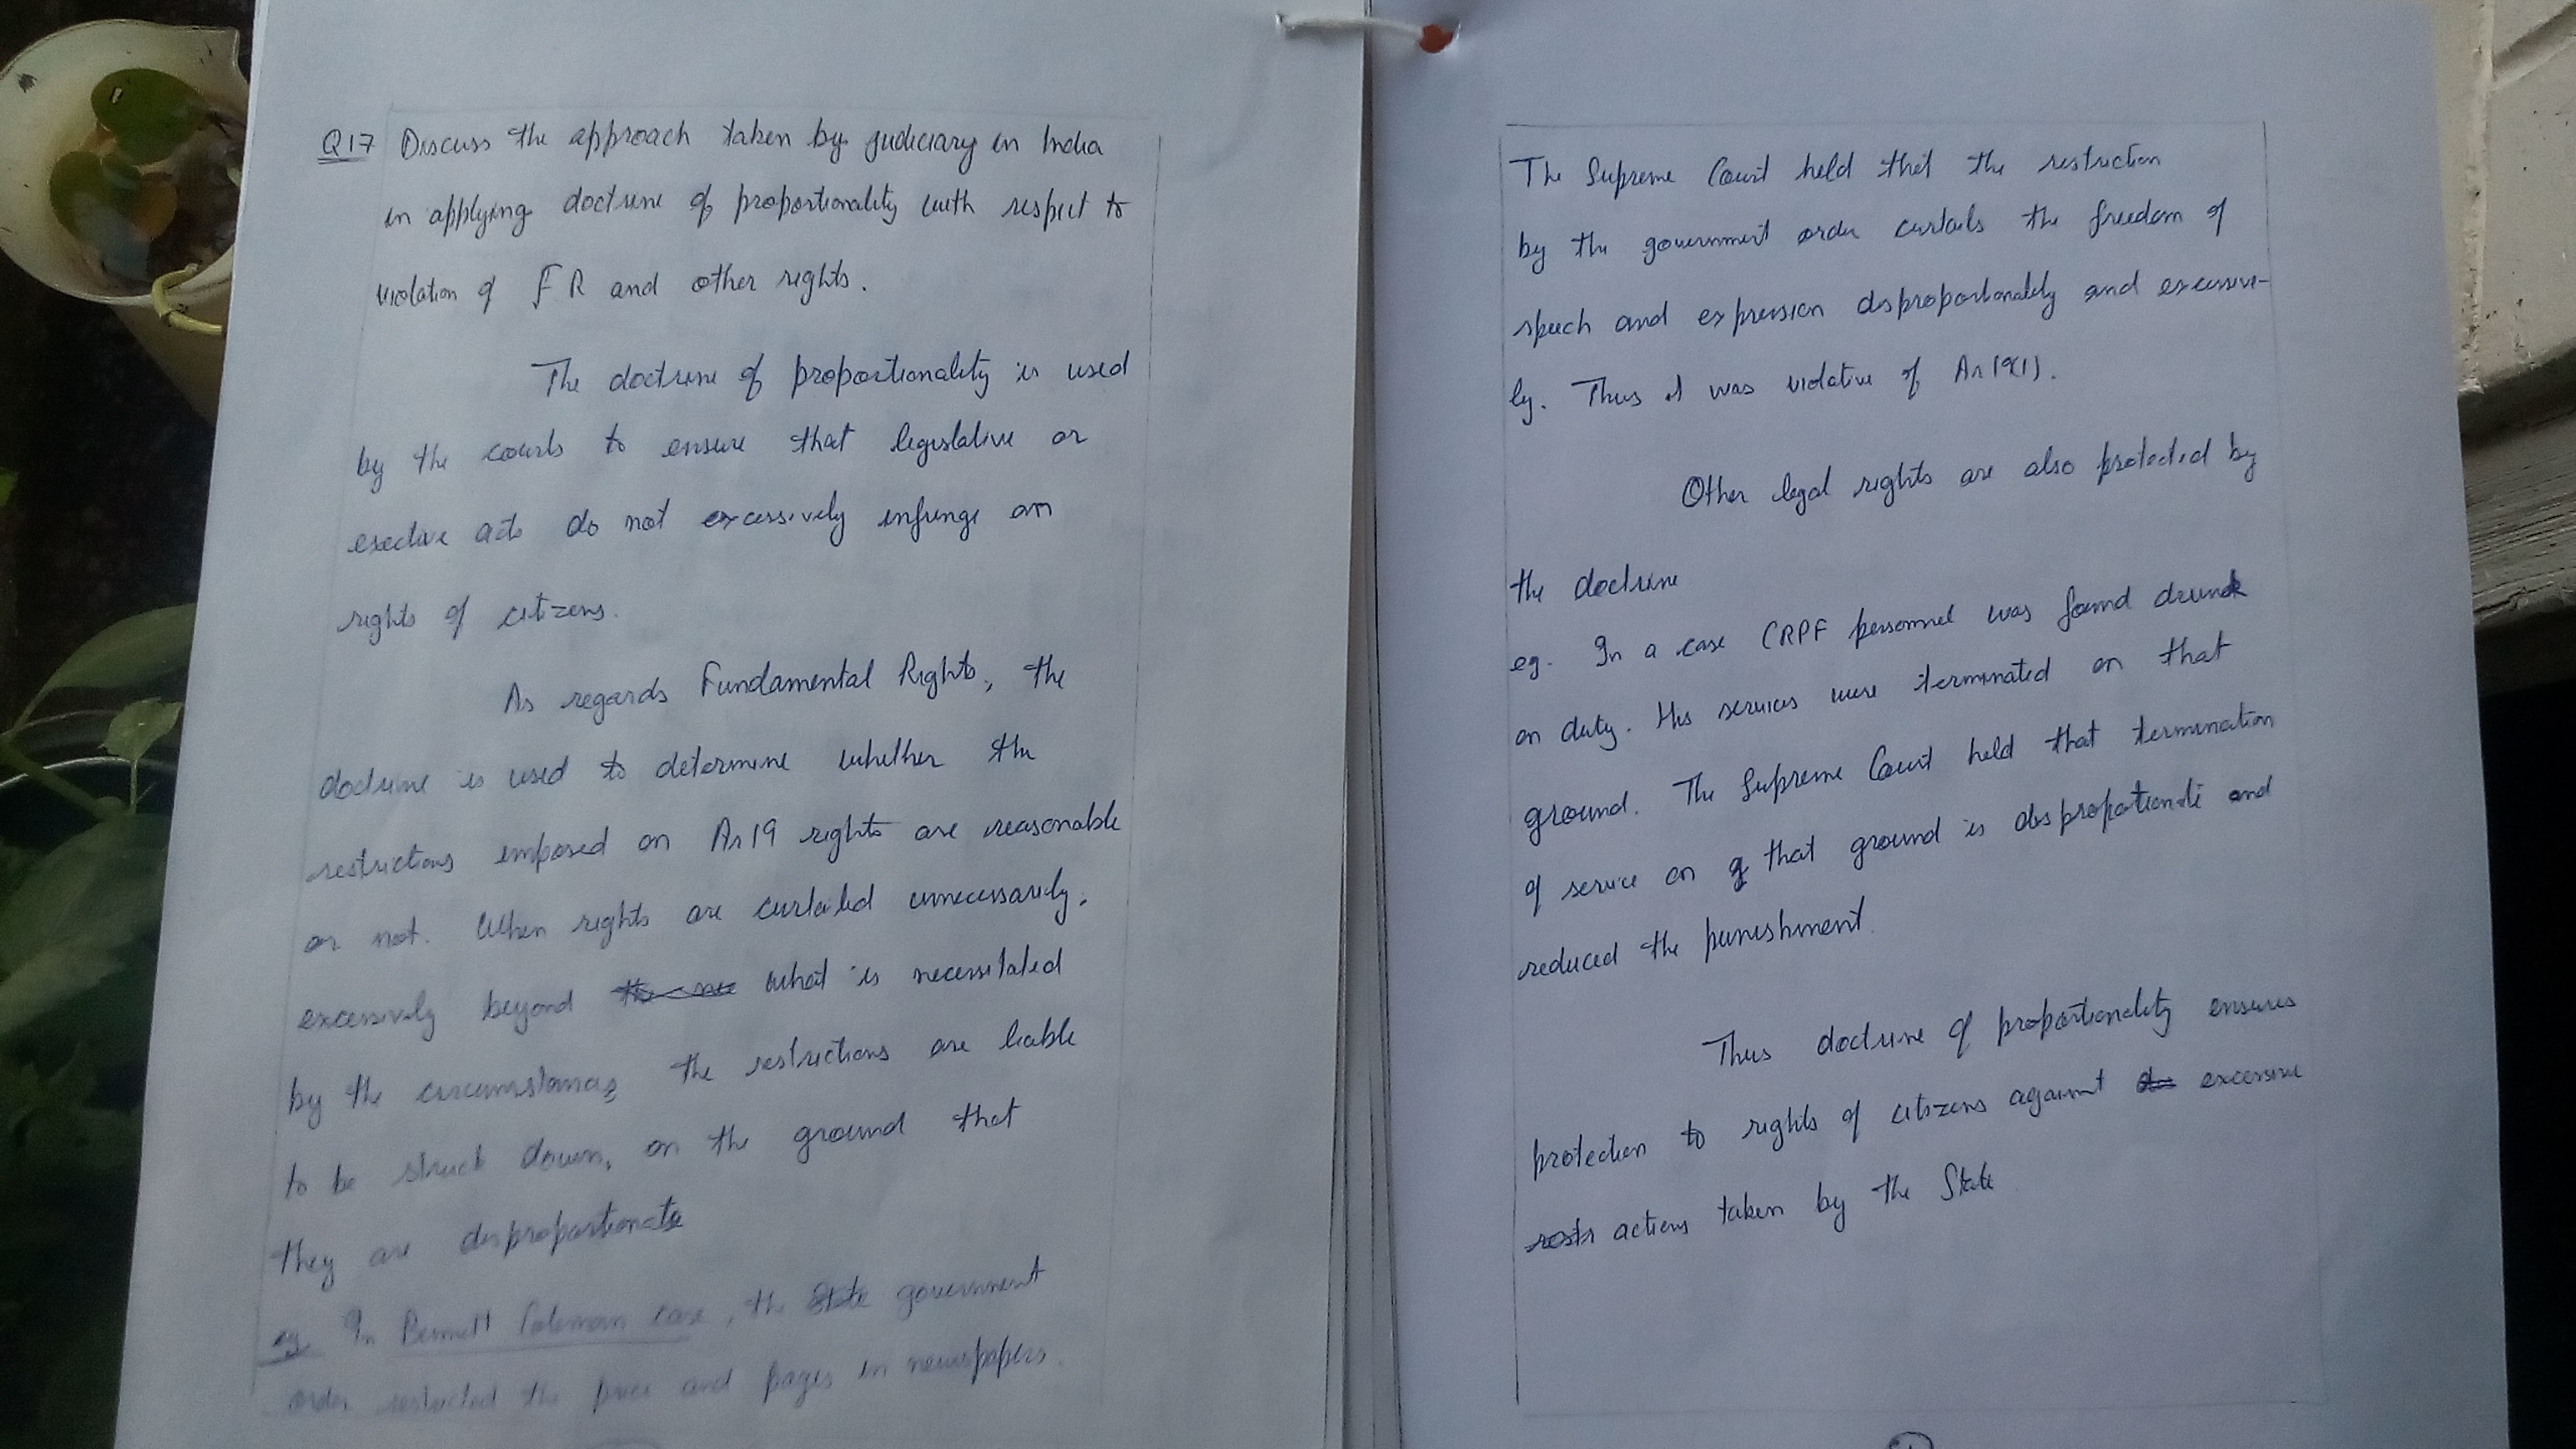 Q17 Discuss the approach taken by judiciary in India
in applying doctrine of proportionality with respect to
violation of FR and other rights.
The doctrine of proportionality is used
by the courts to ensure that legislative or
exective acts do not excessively infringe on
rights of citizens.
As regards Fundamental Rights, the
doctrine is used to determine whether the
restrictions imposed on Ar 19 rights are reasonable
or not. When rights are curtailed unnecessarily,
excessively beyond what is necessitated
by the circumstances the restrictions are liable
to be struck down, on the ground that
they are disproportionate
eg. In Bennett Coleman case, the State government
order restricted the price and pages in newspapers.
The Supreme Court held that the restriction
by the government order curtails the freedom of
speech and expression disproportionately and excessive-
ly. Thus it was violative of Ar 19(1).
Other legal rights are also protected by
the doctrine
eg. In a case CRPF personnel was found drunk
on duty. His services were terminated on that
ground. The Supreme Court held that termination
of service on that ground is disproportionate and
reduced the punishment.
Thus doctrine of proportionality ensures
protection to rights of citizens against excessive
actions taken by the State